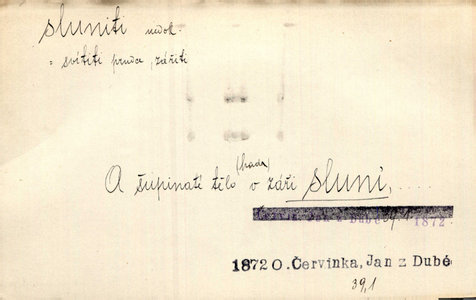 sluniti nedok.
= svítiti prudce, zářiti
(hada)
A šupinaté tělo v záři sluní, ....
1872
1872 O. Červinka, Jan z Dubé
39,1